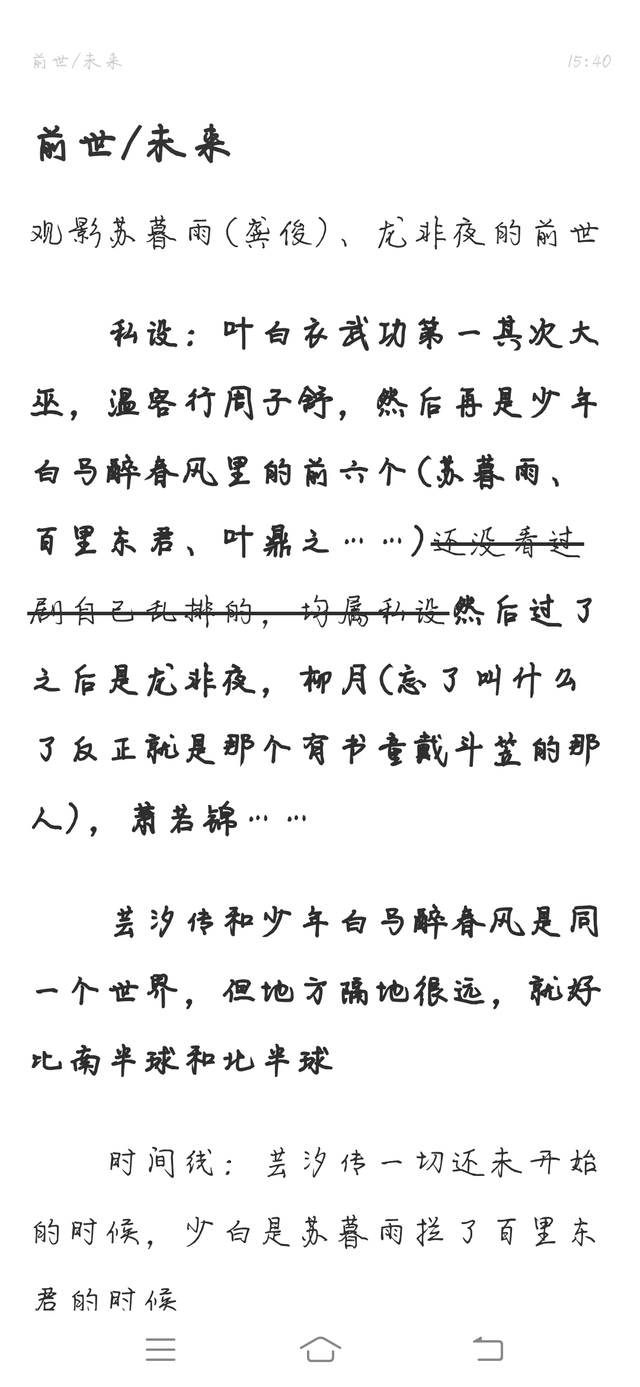 前世/未来 15:40
前世/未来
观影苏暮雨(龚俊)、龙非夜的前世
私设：叶白衣武功第一其次大
巫，温客行周子舒，然后再是少年
白马醉春风里的前六个(苏暮雨、
百里东君、叶鼎之……)还没看过
剧自己乱排的，均属私设然后过了
之后是龙非夜，柳月(忘了叫什么
了反正就是那个有书童戴斗笠的那
人)，萧若锦……
芸汐传和少年白马醉春风是同
一个世界，但地方隔地很远，就好
比南半球和北半球
时间线：芸汐传一切还未开始
的时候，少白是苏暮雨拦了百里东
君的时候